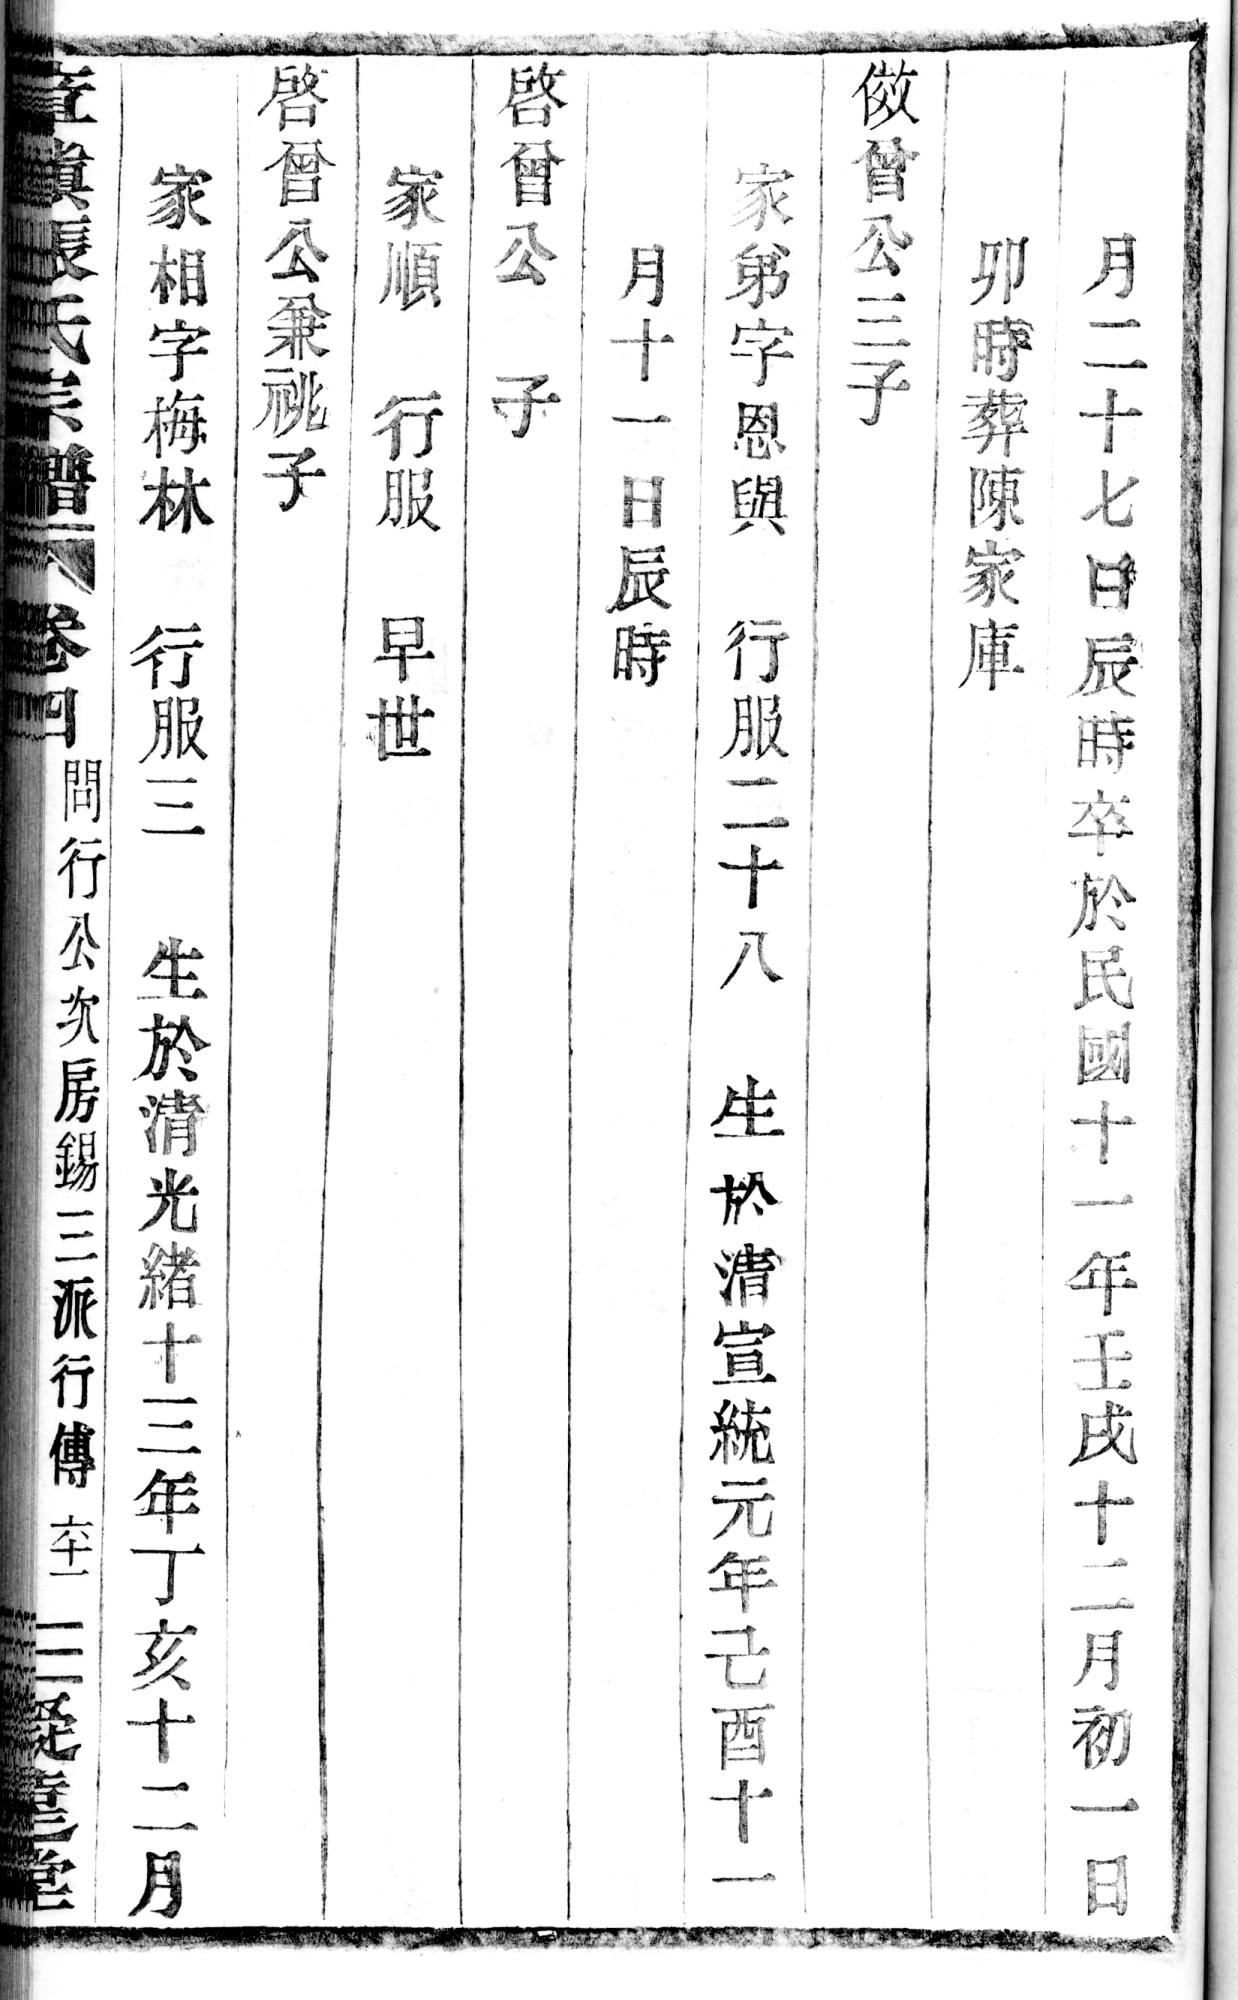 月二十七日辰時卒於民國十一年壬戌十二月初一日
卯時葬陳家庫
儆曾公三子
家弟字恩與 行服二十八 生於清宣統元年己酉十一
月十一日辰時
啓曾公 子
家順 行服 早世
啓曾公兼祧子
家相字梅林 行服三 生於清光緒十三年丁亥十二月
張氏宗譜 卷四 問行公次房錫三派行傳 六十一 三 堂